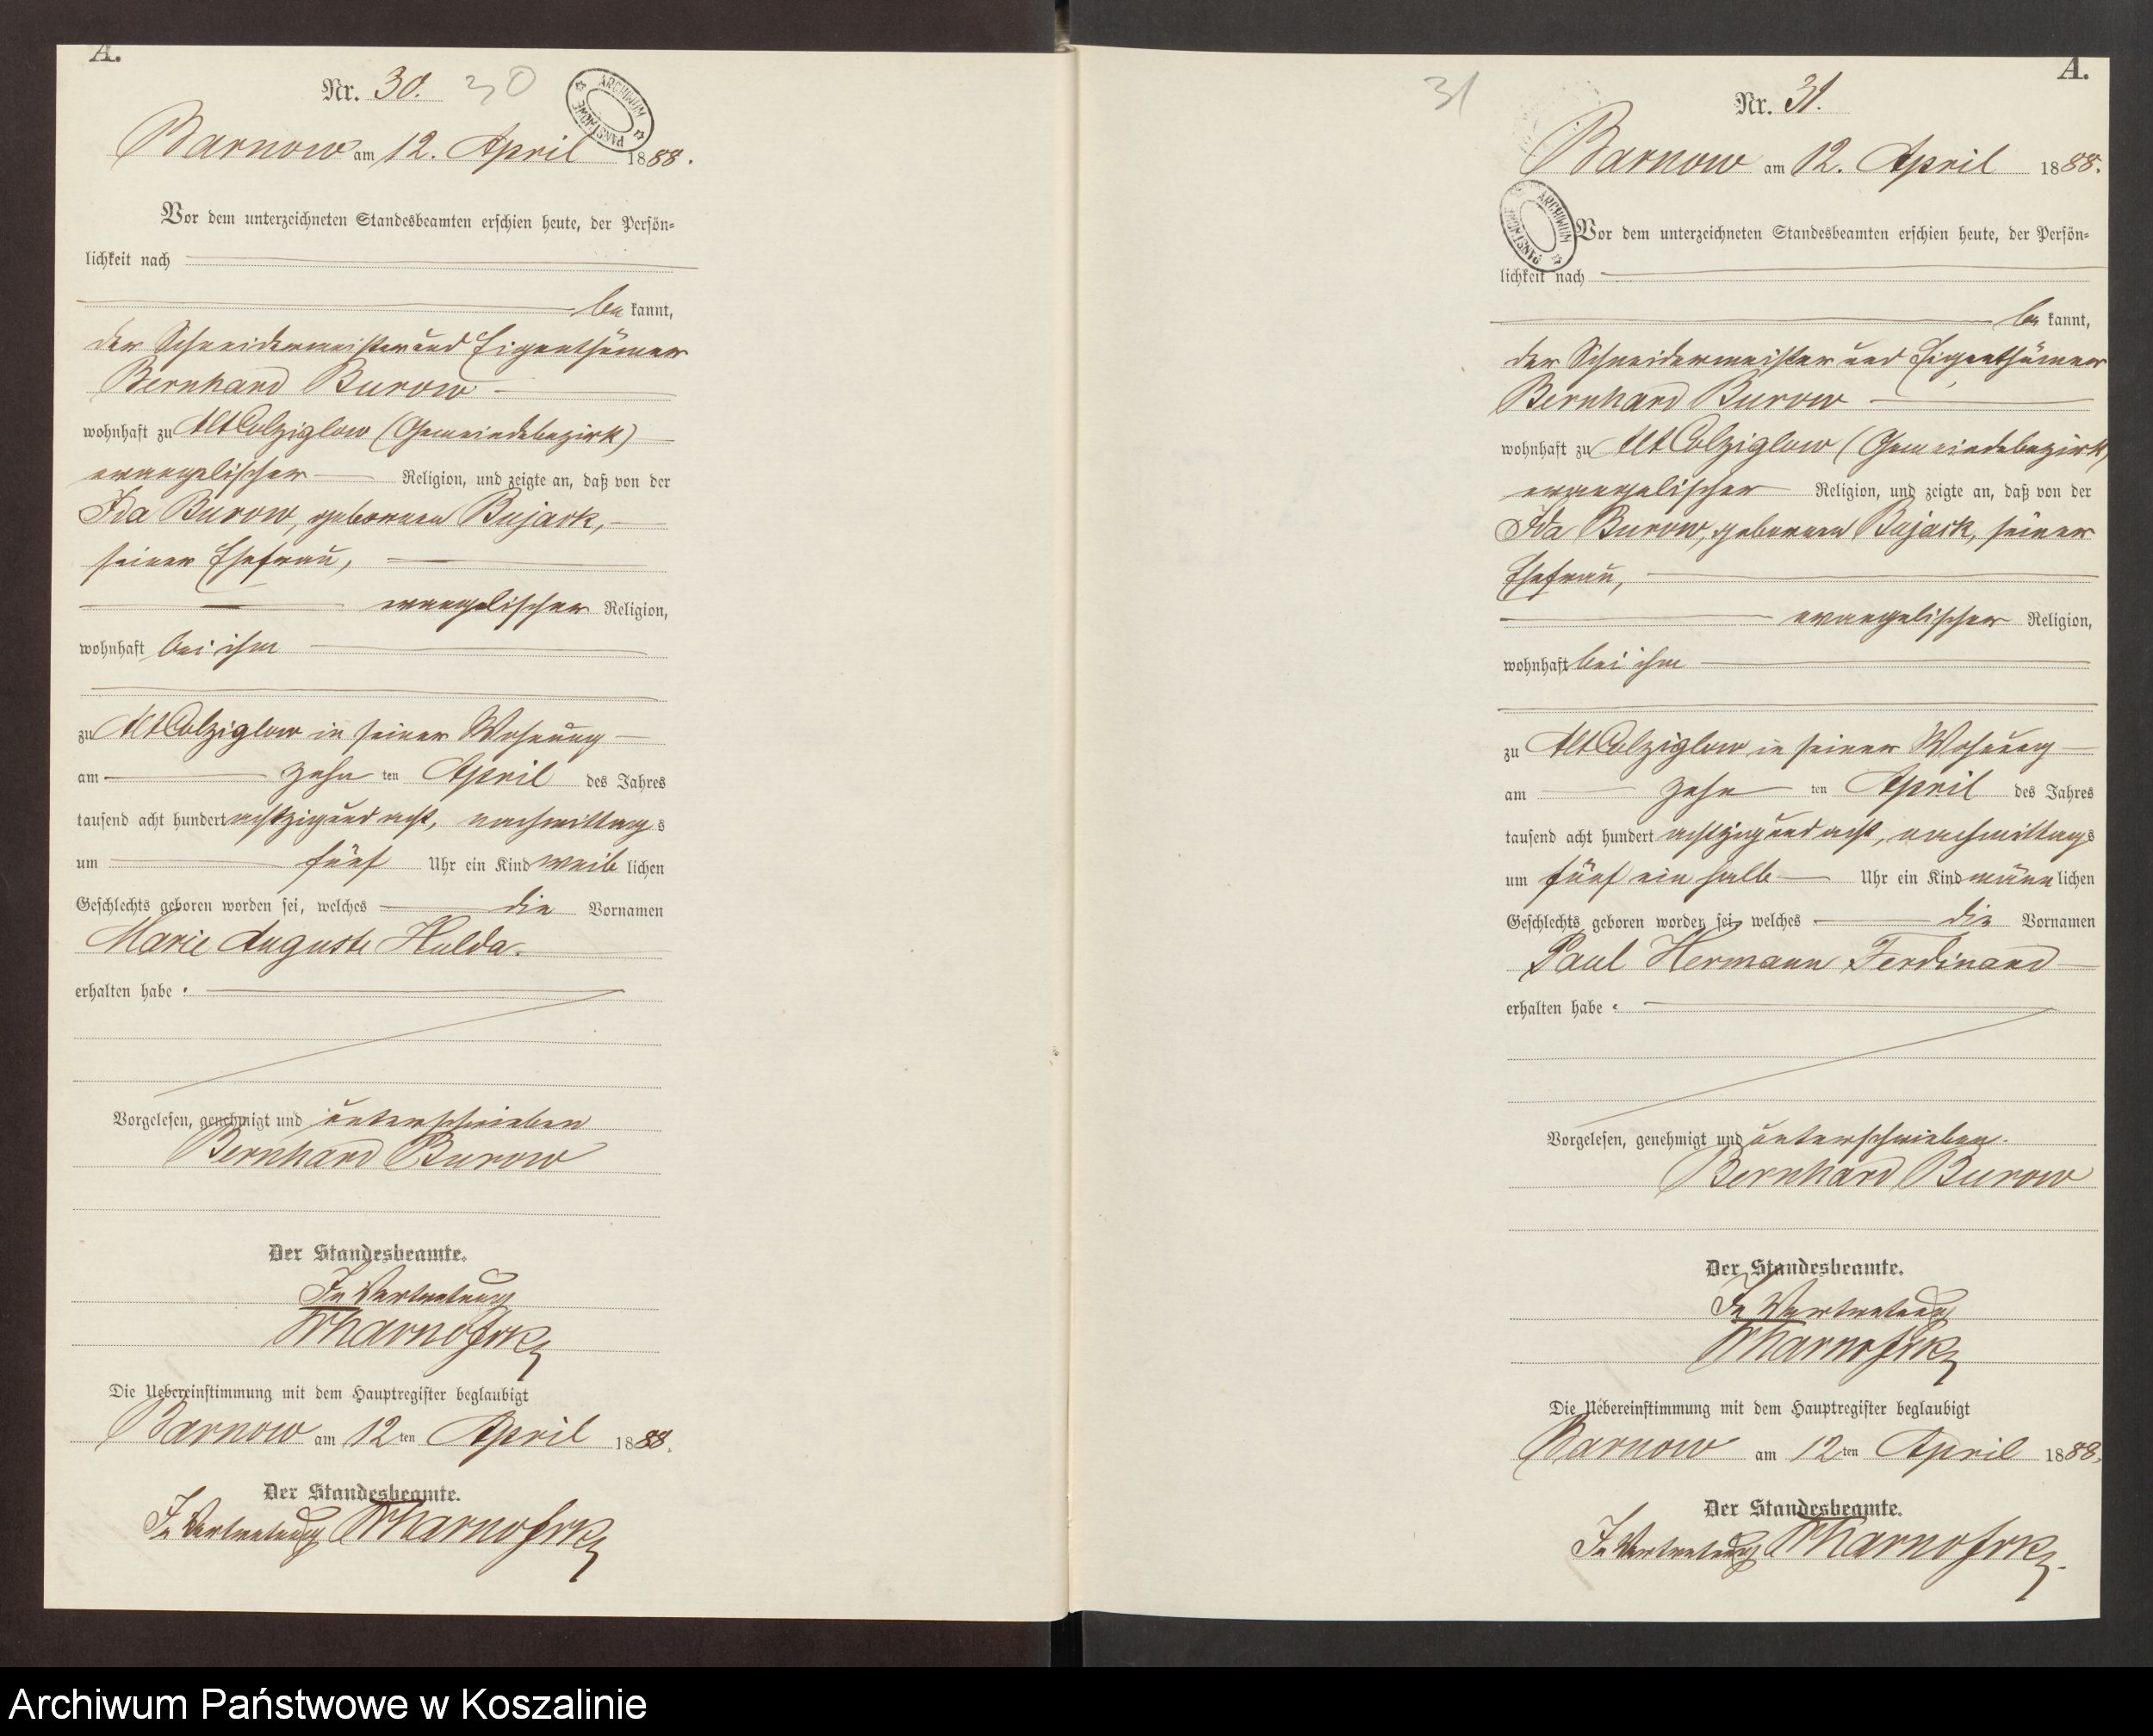 A.
Nr. 30. 30
ARCHIWUM PAŃSTWOWE
Barnow am 12. April 1888.
Vor dem unterzeichneten Standesbeamten erschien heute, der Persön-
lichkeit nach
be kannt,
der Schneidermeister und Eigenthümer
Bernhard Burow
wohnhaft zu Alt Colziglow (Gemeindebezirk)
evangelischer Religion, und zeigte an, daß von der
Ida Burow, geborenen Bujack,
seiner Ehefrau,
evangelischer Religion,
wohnhaft bei ihm
zu Alt Colziglow in seiner Wohnung
am zehn ten April des Jahres
tausend acht hundert achtzig und acht, nachmittags
um fünf Uhr ein Kind weib lichen
Geschlechts geboren worden sei, welches die Vornamen
Marie Auguste Hulda.
erhalten habe.
Vorgelesen, genehmigt und unterschrieben
Bernhard Burow
Der Standesbeamte.
In Vertretung
Die Uebereinstimmung mit dem Hauptregister beglaubigt
Barnow am 12ten April 1888.
Der Standesbeamte.
In Vertretung
A.
31 Nr. 31.
Barnow am 12. April 1888.
ARCHIWUM PAŃSTWOWE
Vor dem unterzeichneten Standesbeamten erschien heute, der Persön-
lichkeit nach
be kannt,
der Schneidermeister und Eigenthümer
Bernhard Burow
wohnhaft zu Alt Colziglow (Gemeindebezirk)
evangelischer Religion, und zeigte an, daß von der
Ida Burow, geborenen Bujack, seiner
Ehefrau,
evangelischer Religion,
wohnhaft bei ihm
zu Alt Colziglow in seiner Wohnung
am zehn ten April des Jahres
tausend acht hundert achtzig und acht, nachmittags
um fünf ein halb Uhr ein Kind männ lichen
Geschlechts geboren worden sei, welches die Vornamen
Paul Hermann Ferdinand
erhalten habe.
Vorgelesen, genehmigt und unterschrieben.
Bernhard Burow
Der Standesbeamte.
In Vertretung
Die Uebereinstimmung mit dem Hauptregister beglaubigt
Barnow am 12ten April 1888.
Der Standesbeamte.
In Vertretung
Archiwum Państwowe w Koszalinie